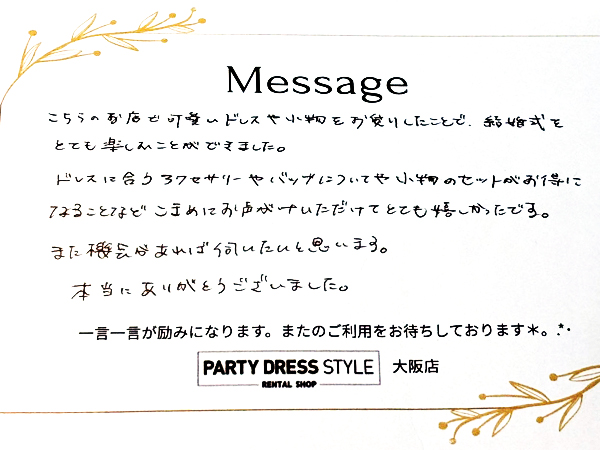 Message
こちらのお店で可愛いドレスや小物をお貸りしたことで、結婚式を
とても楽しむことができました。
ドレスに合うアクセサリーやバッグについてや小物のセットがお得に
なることなど こまめにお声がけいただけてとても嬉しかったです。
また機会があれば伺いたいと思います。
本当にありがとうございました。
一言一言が励みになります。またのご利用をお待ちしております＊。
PARTY DRESS STYLE
RENTAL SHOP
大阪店